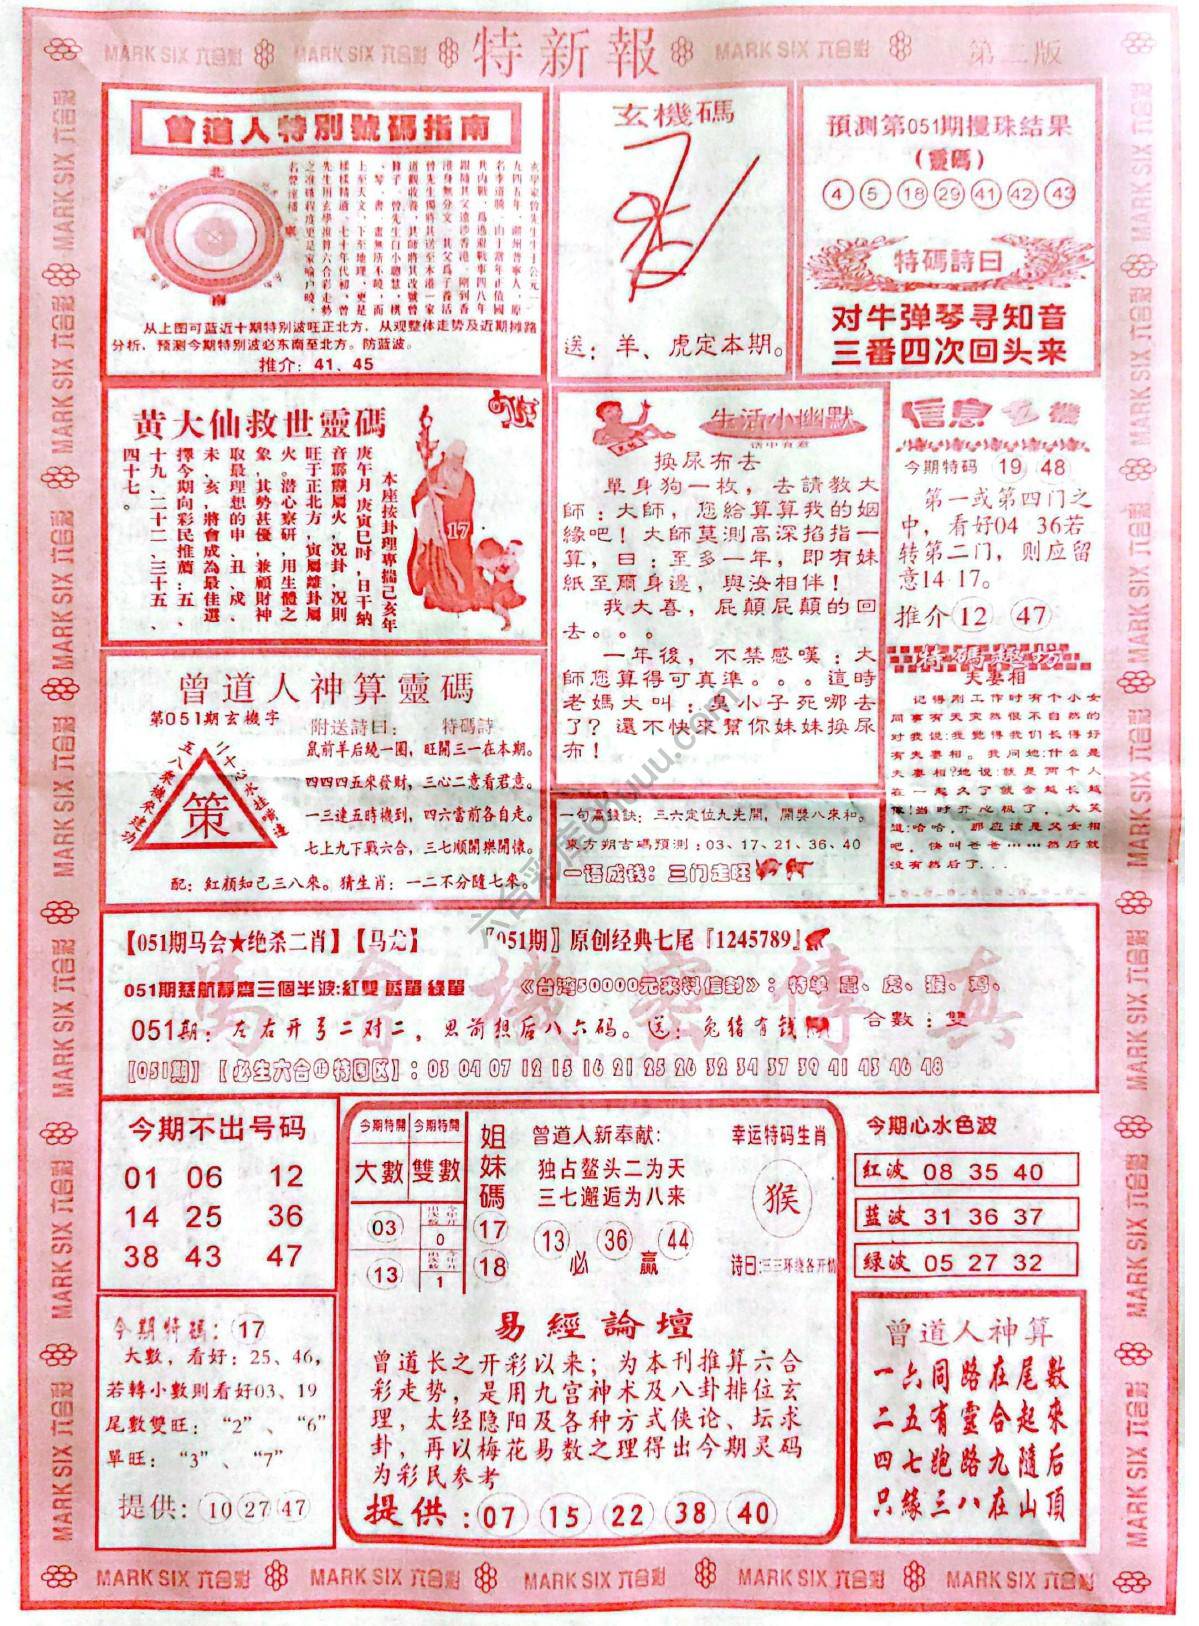 MARK SIX 六合彩
MARK SIX 六合彩
特新報
MARK SIX 六合彩
第二版
曾道人特別號碼指南
北
西
南
从上图可蓝近十期特别波旺正北方，从观整体走势及近期摊路
分析，预测今期特别波必东南至北方。防蓝波。
推介：41、45
玄機碼
送：羊、虎定本期。
預測第051期攪珠結果
(靈碼)
4 5 18 29 41 42 43
特碼詩曰
对牛弹琴寻知音
三番四次回头来
黄大仙救世靈碼
本座按卦理專揣己亥年
庚午月庚寅巳时，日干纳
音霹靂屬火，况卦，况則
旺于正北方，寅屬離卦屬
火。潜心察研，用生體之
象，其勢甚優，兼顧財神
取最理想的申、丑、戌、
未、亥，將會成為最佳選
擇今期向彩民推薦：五、
十九、二十二、三十五、
四十七。
17
生活小幽默
换尿布去
單身狗一枚，去請教大
師：大師，您給算算我的姻
緣吧！大師莫測高深掐指一
算，曰：至多一年，即有妹
紙至爾身邊，與汝相伴！
我大喜，屁顛屁顛的回
去。。。
一年後，不禁感嘆：大
師您算得可真準。。。這時
老媽大叫：臭小子死哪去
了？還不快來幫你妹妹換尿
布！
信息玄機
今期特码 19 48
第一或第四门之
中，看好04 36若
转第二门，则应留
意14 17。
推介 12 47
特碼趣坊
夫妻相
记得刚工作时有个小女
同事有天突然很不自然的
对我说:我觉得我们长得好
有夫妻相。我问她:什么是
夫妻相?她说:就是两个人
在一起久了就会越长越
像!当时开心极了，大笑
道:哈哈，那应该是父女相
吧，快叫爸爸……然后就
没有然后了...
曾道人神算靈碼
第051期玄機字
附送詩曰： 特碼詩
策
鼠前羊后繞一圈，旺開三一在本期。
四四四五來發財，三心二意看君意。
一三連五時機到，四六當前各自走。
七上九下戰六合，三七順開樂開懷。
配：紅顏知己三八來。猜生肖：一二不分隨七來。
一句贏錢訣：三六定位九先開，開獎八來和。
東方朔吉碼預測：03、17、21、36、40
一语成钱：三门走旺
【051期马会★绝杀二肖】【马龙】
〖051期〗原创经典七尾『1245789』
馬會機密傳真
051期慈航靜齋三個半波:紅雙 藍單 綠單
《台湾50000元来料信封》：特单 鼠、虎、猴、鸡、
051期：左右开弓二对二，思前想后八六码。送：兔猪有钱
合數：雙
【051期】【必生六合±特围区】：03 04 07 12 13 16 21 25 26 32 34 37 39 41 43 46 48
今期不出号码
01 06 12
14 25 36
38 43 47
今期特開 今期特開
大數 雙數
03
0
13
1
姐妹碼
17
18
曾道人新奉献：
独占鳌头二为天
三七邂逅为八来
13 36 44
必赢
幸运特码生肖
猴
诗曰:三三环绕各开情
易經論壇
曾道长之开彩以来；为本刊推算六合
彩走势，是用九宫神术及八卦排位玄
理，太经隐阳及各种方式侠论、坛求
卦，再以梅花易数之理得出今期灵码
为彩民参考
提供：07 15 22 38 40
今期心水色波
红波 08 35 40
蓝波 31 36 37
绿波 05 27 32
今期特碼：17
大數，看好：25、46，
若轉小數則看好03、19
尾數雙旺：“2”、“6”
單旺：“3”、“7”
提供：10 27 47
曾道人神算
一六同路在尾數
二五有靈合起來
四七跑路九隨后
只緣三八在山頂
MARK SIX 六合彩
MARK SIX 六合彩
MARK SIX 六合彩
MARK SIX 六合彩
MARK SIX 六合彩